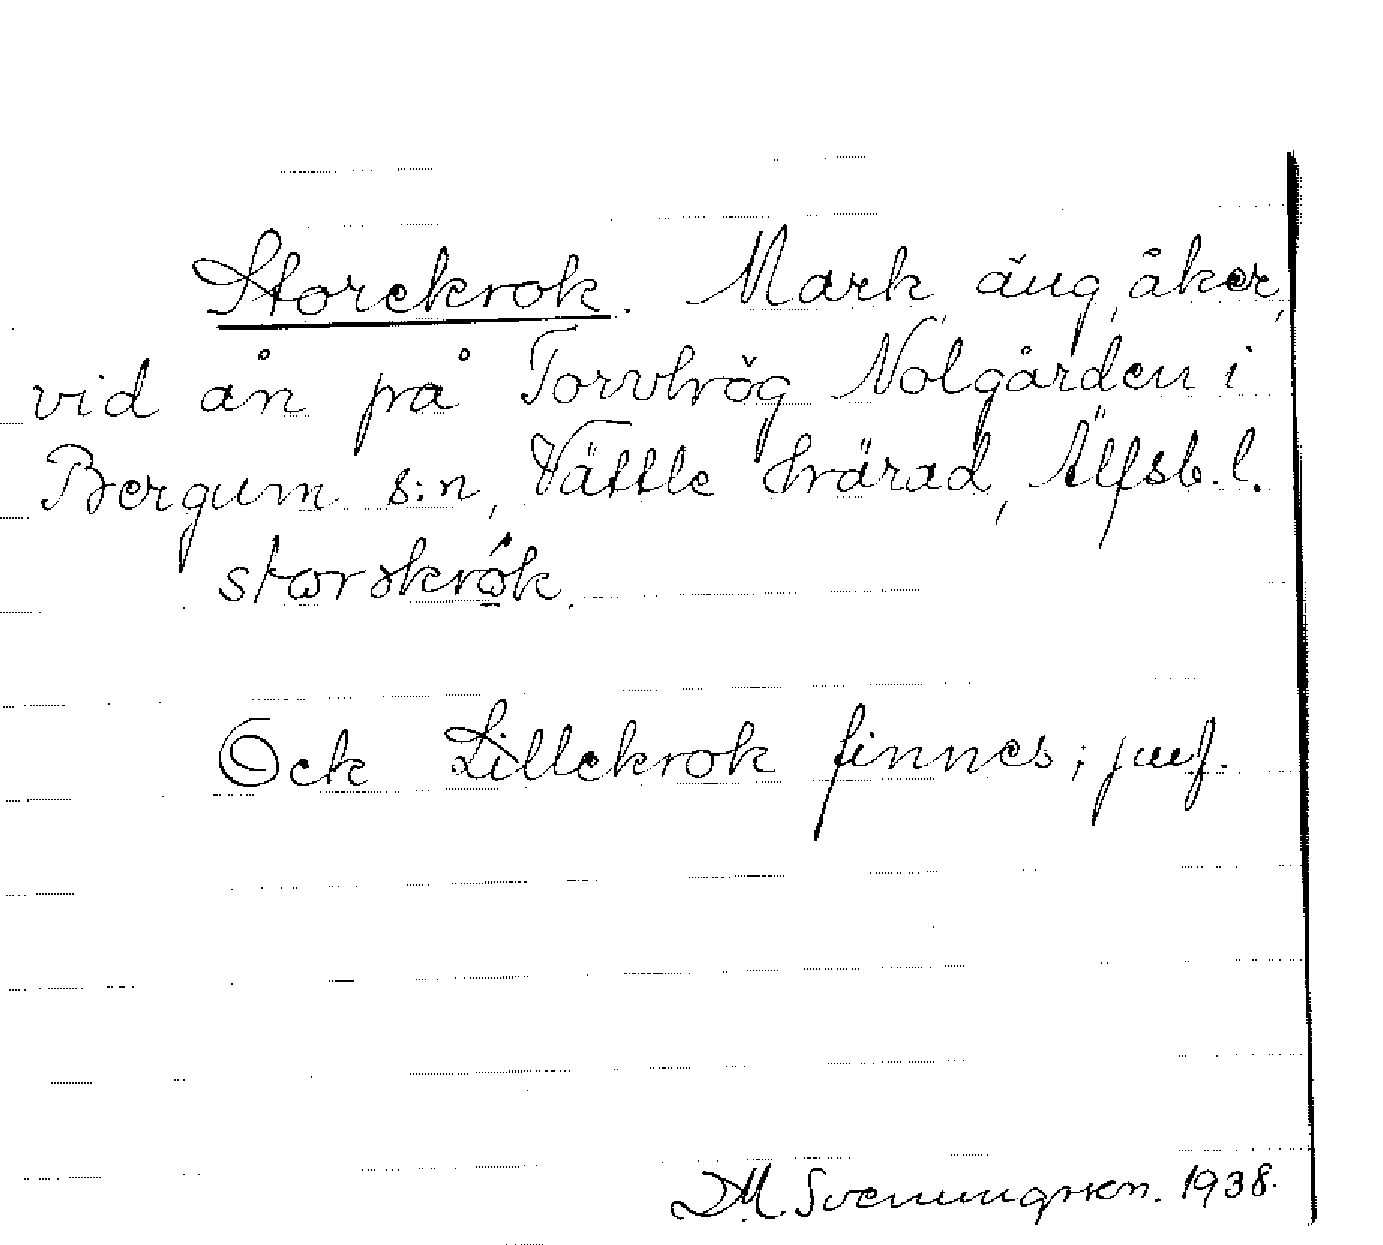 Storekrok. Mark, äng, åker,
vid ån på Torvhög Nolgården i
Bergum s:n, Vättle härad, Älfsb. l.
Ock Lillekrok finnes; jmf.
D.M. Svenungsson. 1938.